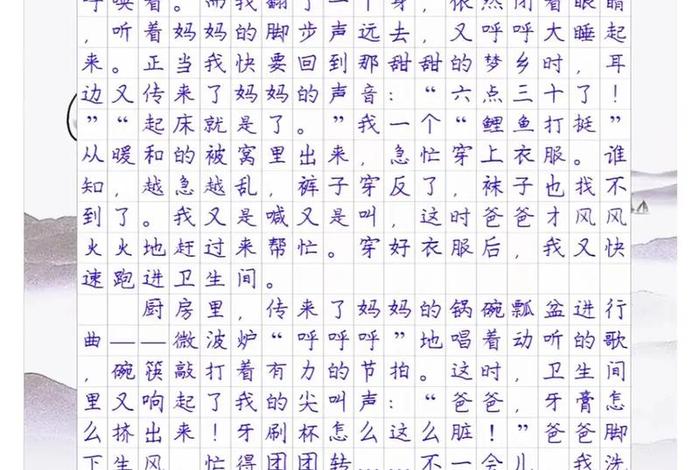 呼唤着。而我翻了一个身，依然闭着眼睛
，听着妈妈的脚步声远去，又呼呼大睡起
来。正当我快要回到那甜甜的梦乡时，耳
边又传来了妈妈的声音：“六点三十了！
”“起床就是了。”我一个“鲤鱼打挺”
从暖和的被窝里出来，急忙穿上衣服。谁
知，越急越乱，裤子穿反了，袜子也找不
到了。我又是喊又是叫，这时爸爸才风风
火火地赶过来帮忙。穿好衣服后，我又快
速跑进卫生间。
厨房里，传来了妈妈的锅碗瓢盆进行
曲——微波炉“呼呼呼”地唱着动听的歌
，碗筷敲打着有力的节拍。这时，卫生间
里又响起了我的尖叫声：“爸爸，牙膏怎
么挤出来！牙刷杯怎么这么脏！”爸爸脚
下生风，忙得团团转……不一会儿，我洗